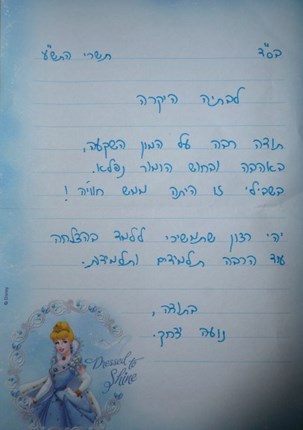 בס"ד
תשרי התשע"א
לבתיה היקרה
תודה רבה על המון השקעה,
באהבה ובחוש הומור נפלא.
בשבילי זו היתה ממש חוויה!
יהי רצון שתמשיכי ללמד בהצלחה
עוד הרבה תלמידים ותלמידות.
בתודה,
נועה
Dressed to
Shine
© Disney